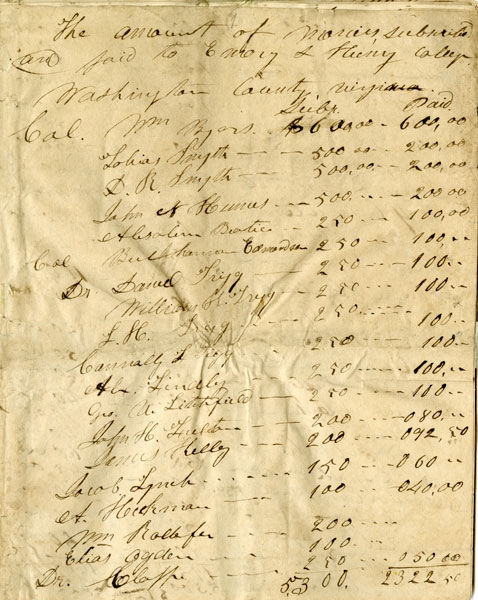 The amount of Moneys subscribed
and paid to Emory & Henry College
Washington County, Virginia
Subs. Paid
Col. Wm Byars. $600.00 - 600,00
Tobias Smyth - - 500.00 - - 200,00
D. R. Smyth - - 500,00 - - 200,00
John N Humes - - 500.00 - - 200,00
Absalem Beatie - - 250 - - - 100,00
Col Edmondson 250 - - - 100,..
Dr Daniel Trigg - - - 250 - - - 100..
William H. Trigg - - 250 - - - 100..
L. H. Trigg - - - 250 - - - 100
Connally F Trigg - - 250 - - - 100..
Alx. Findley - - - 250 - - - 100,..
Geo. V. Litchfield - - 250 - - - 100..
John H. Fulton - - 200 - - - 080,..
James Kelly - - - 200 - - - 092,50
Jacob Lynch - - - 150 - - - 060..
A. Hickman - - - 100 - - - 040,00
Wm - - - 200 - - -
Elias Ogden - - - 100 - -
Dr. - - - 250 - - - 050 00
5300. 2322 50